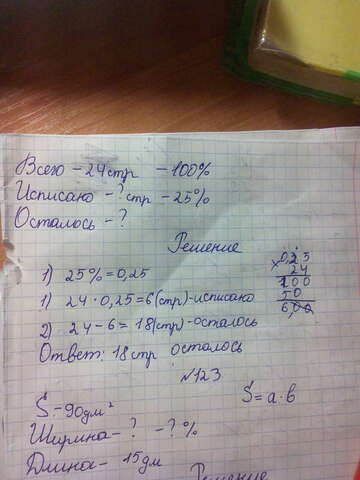 Всего - 24 стр - 100%
Исписано - ? стр - 25%
Осталось - ?
Решение
1) 25% = 0,25
1) 24 · 0,25 = 6 (стр) - исписано
2) 24 - 6 = 18 (стр) - осталось
Ответ: 18 стр осталось
× 0,25
24
100
50
6,00
№123
S - 90 дм²
S = a · b
Ширина - ? - ? %
Длина - 15 дм
Решение